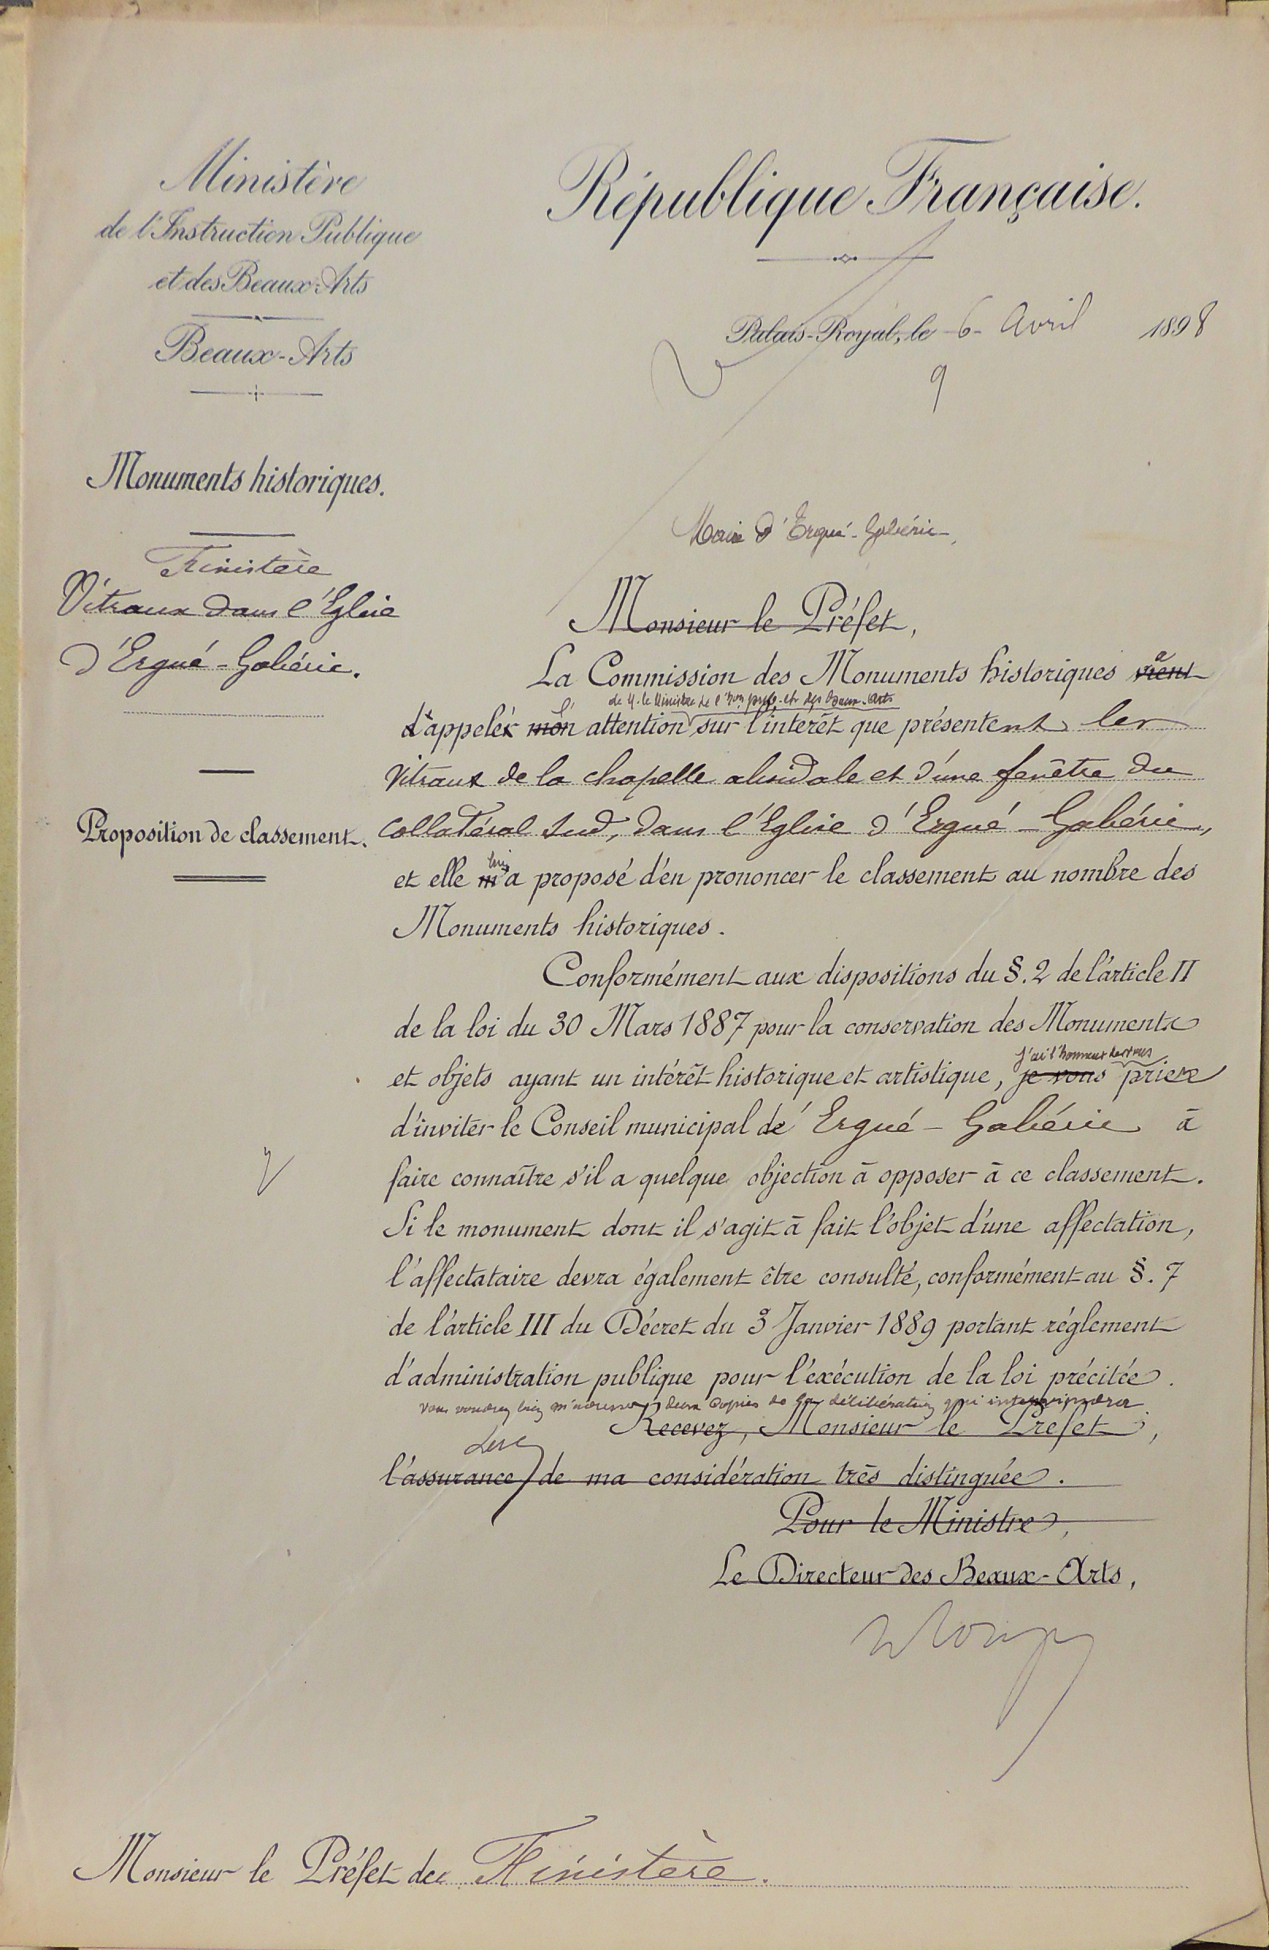 Ministère
de l'Instruction Publique
et des Beaux-Arts
Beaux-Arts
Monuments historiques.
Finistère
Vitraux dans l'Eglise
d'Ergué-Gabéric.
Proposition de classement.
République Française.
Palais-Royal, le 6 Avril 1898
9
Maire d'Ergué-Gabéric,
Monsieur le Préfet,
La Commission des Monuments historiques vient a
de M. le Ministre de l'Ion pubque et des Beaux-Arts
d'appeler mon l' attention sur l'intérêt que présentent les
vitraux de la chapelle absidale et d'une fenêtre du
collatéral sud, dans l'Eglise d'Ergué-Gabéric,
lui
et elle m'a proposé d'en prononcer le classement au nombre des
Monuments historiques.
Conformément aux dispositions du §.2 de l'article II
de la loi du 30 Mars 1887 pour la conservation des Monuments
j'ai l'honneur de vous
et objets ayant un intérêt historique et artistique, je vous prier
d'inviter le Conseil municipal d'Ergué-Gabéric à
faire connaître s'il a quelque objection à opposer à ce classement.
Si le monument dont il s'agit a fait l'objet d'une affectation,
l'affectataire devra également être consulté, conformément au §.7
de l'article III du Décret du 3 Janvier 1889 portant réglement
d'administration publique pour l'exécution de la loi précitée.
vous voudrez bien m'adresser deux copies de la délibération qui interviendra
Recevez, Monsieur le Préfet,
l'assurance de ma considération très distinguée.
Pour le Ministre,
Le Directeur des Beaux-Arts,
Monsieur le Préfet du Finistère.